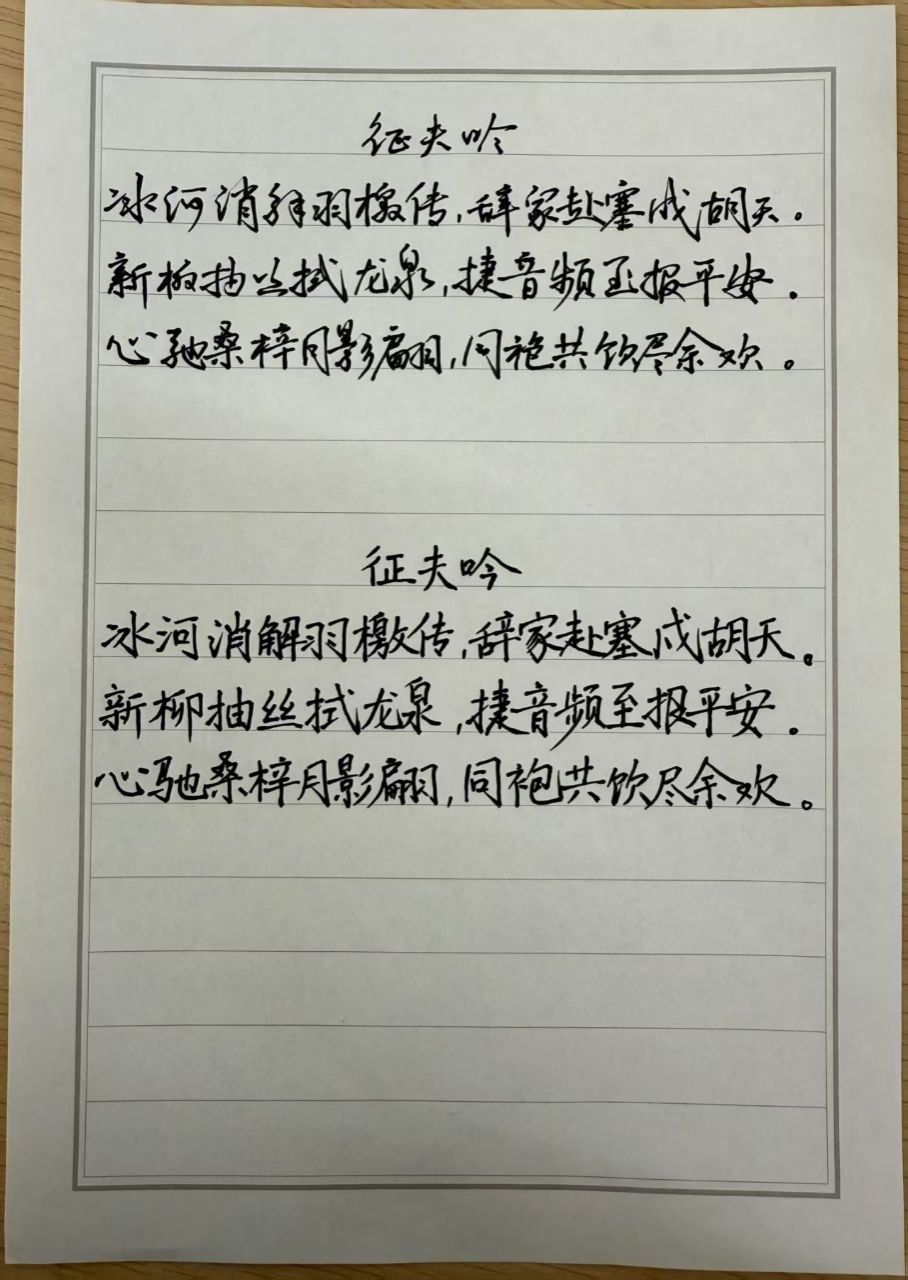 征夫吟
冰河消解羽檄传,辞家赴塞戍胡天。
新柳抽丝拭龙泉,捷音频至报平安。
心驰桑梓月影翩,同袍共饮尽余欢。
征夫吟
冰河消解羽檄传,辞家赴塞戍胡天。
新柳抽丝拭龙泉,捷音频至报平安。
心驰桑梓月影翩,同袍共饮尽余欢。